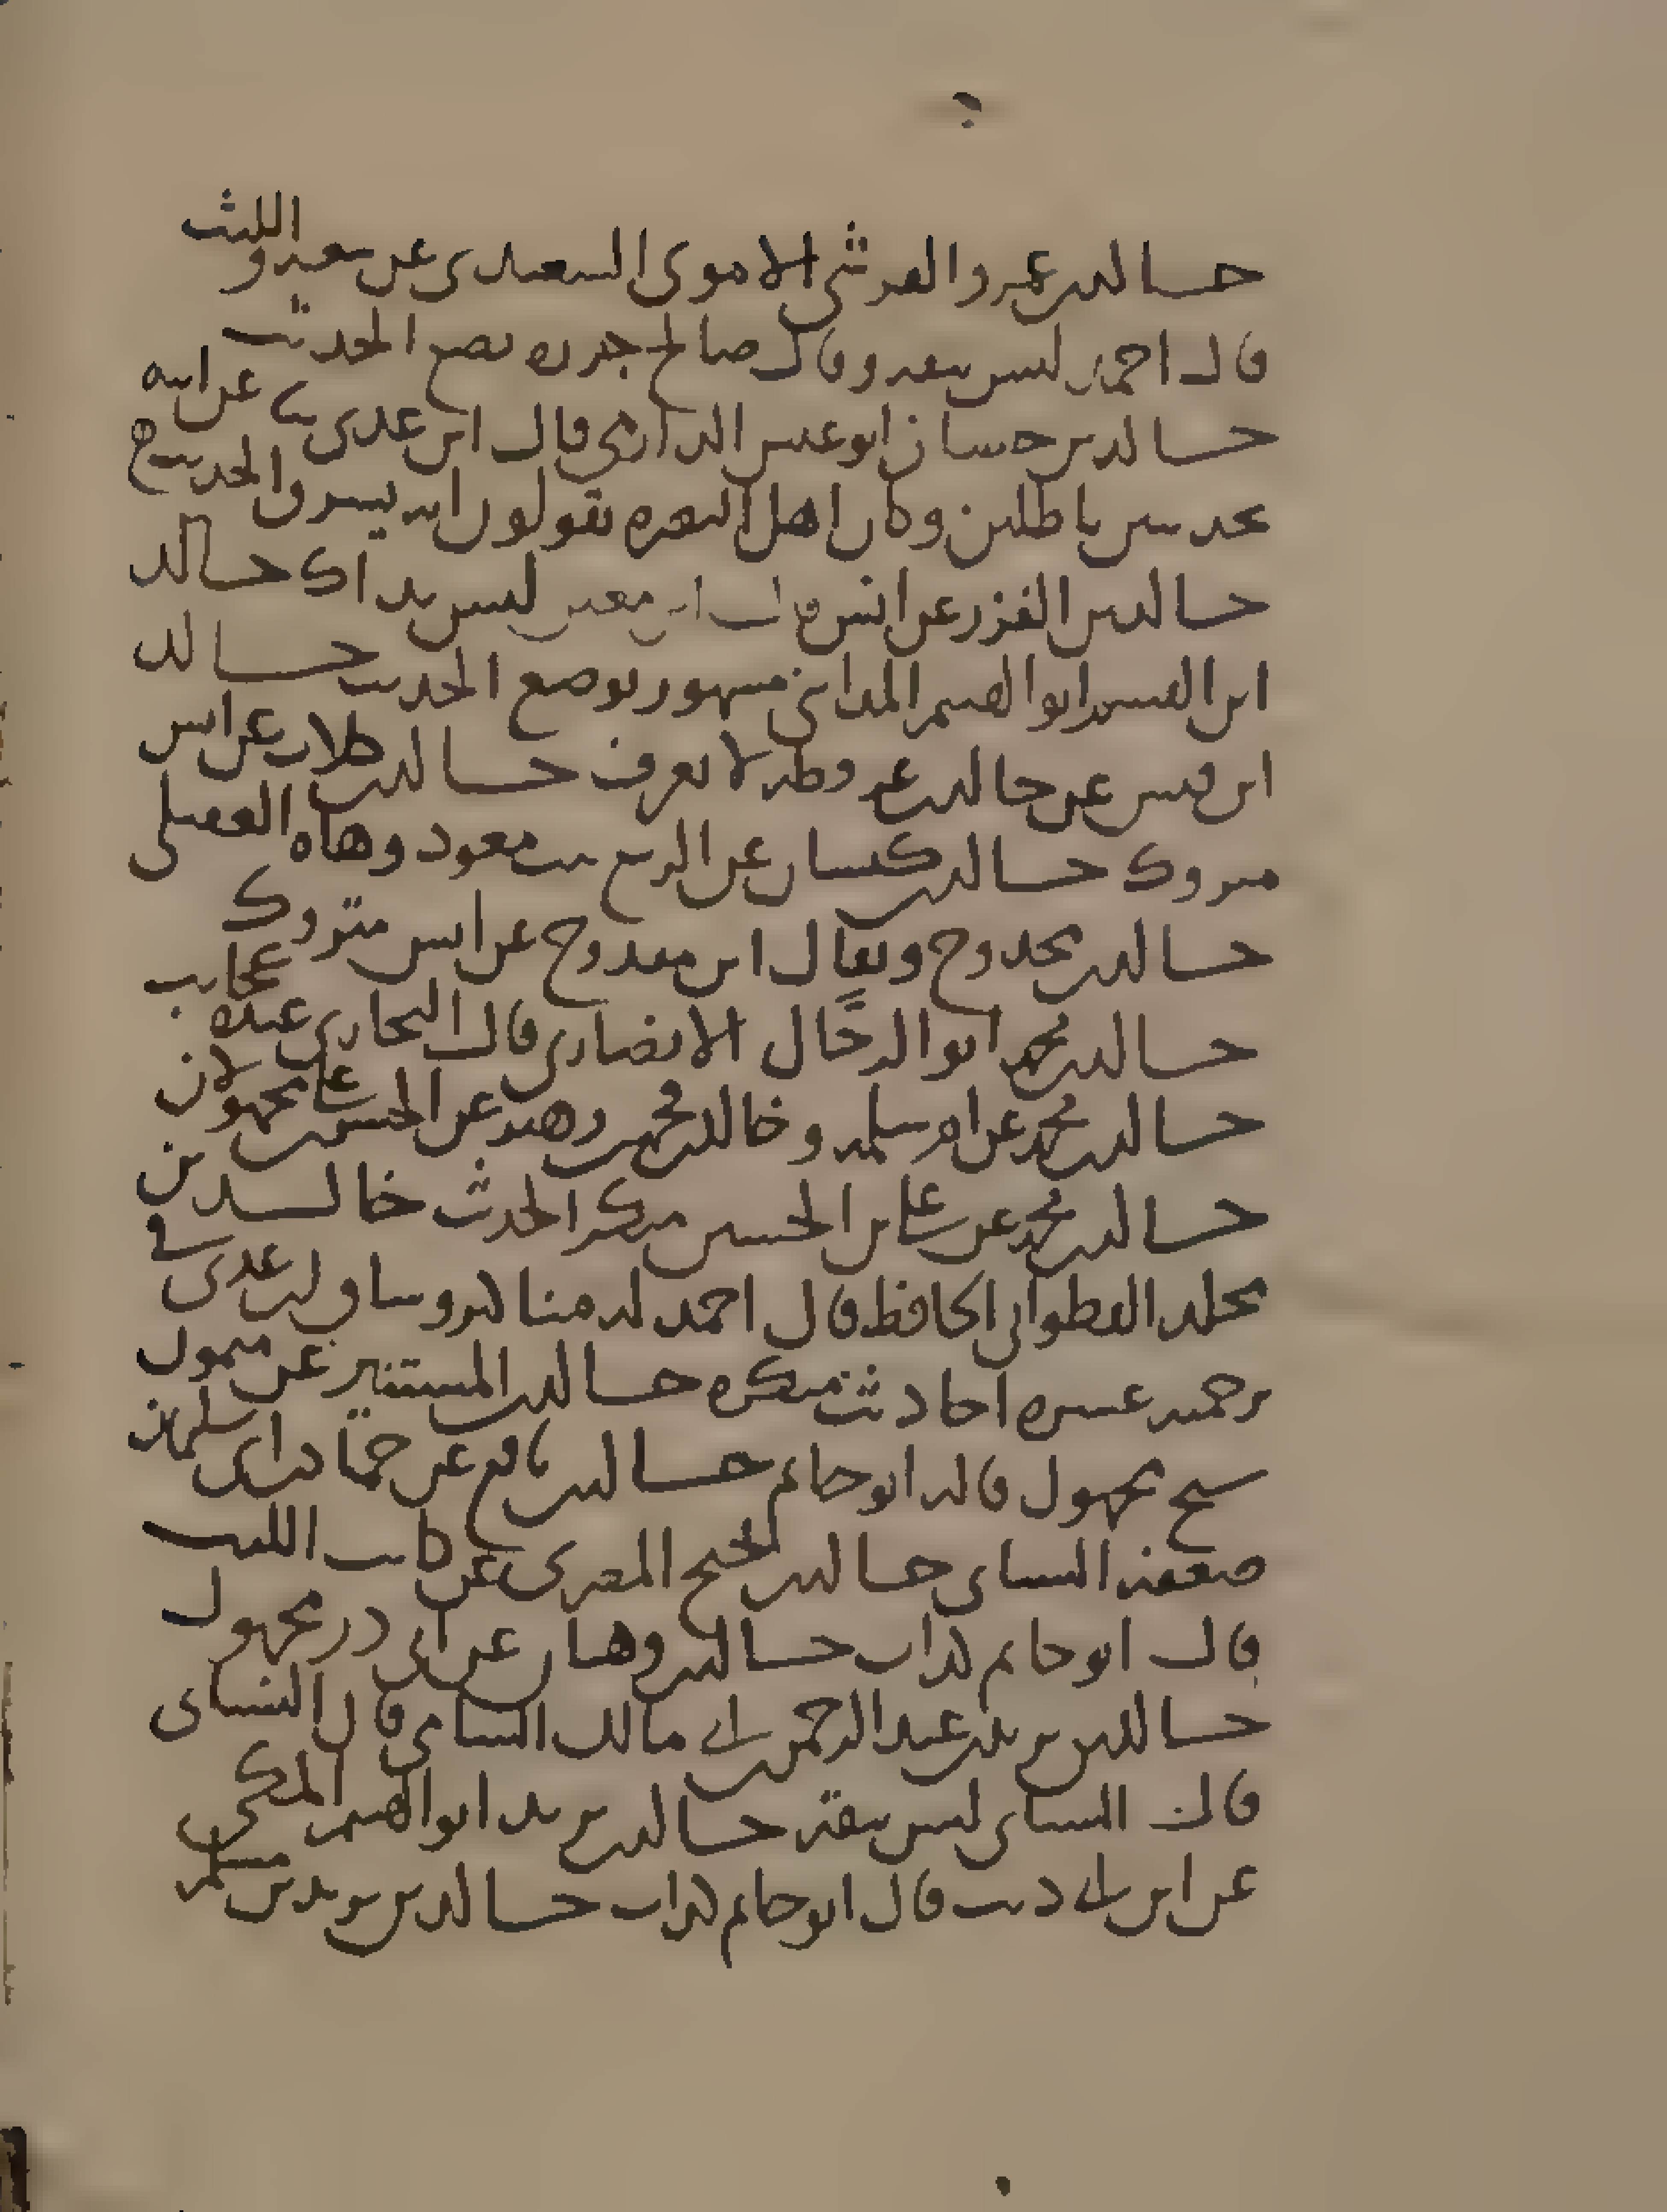 خالد بن عمرو القرشي الاموي السعيدي عن سعيد والليث
قال احمد ليس بثقه وقال صالح جزره يضع الحديث
خالد بن غسان ابو عبس الدارمي قال ابن عدي حدث عن ابيه
بحديثين باطلين وكان اهل البصره يقولون انه يسرق الحديث
خالد بن الفزر عن انس قال ابن معين ليس بذاك خالد
ابن القسم ابو الهيثم المدايني مشهور بوضع الحديث خالد
ابن قيس عن خالد بن عرفطه لا يعرف خالد بن كلاب عن انس
متروك خالد بن كيسان عن الربيع بنت معوذ وهاه العقيلي
خالد بن محدوج ويقال ابن مقدوح عن انس متروك
خالد بن محمد ابو الرحال الانصاري قال البخاري عنده عجايب
خالد بن محمد عن ام سلمه وخالد بن محمد بن زهير عن الحسن بن علي مجهولان
خالد بن محمد عن علي بن الحسين منكر الحديث خالد بن
مخلد القطواني الحافظ قال احمد له مناكير وساق ابن عدي في
ترجمته عشره احاديث منكره خالد بن المستنير عن ميمون
شيخ مجهول قاله ابو حاتم خالد بن نافع عن حماد بن ابي سليمان
ضعفه النساي خالد بن نجيح المصري عن كاتب الليث
قال ابو حاتم كذاب خالد بن وهبان عن ابي ذر مجهول
خالد بن يزيد بن عبد الرحمن بن ابي مالك الشامي قال النساي
قال النساي ليس بثقه خالد بن يزيد ابو الهيثم المكي
عن ابن ابي ذيب قال ابو حاتم كذاب خالد بن يزيد بن مسلم